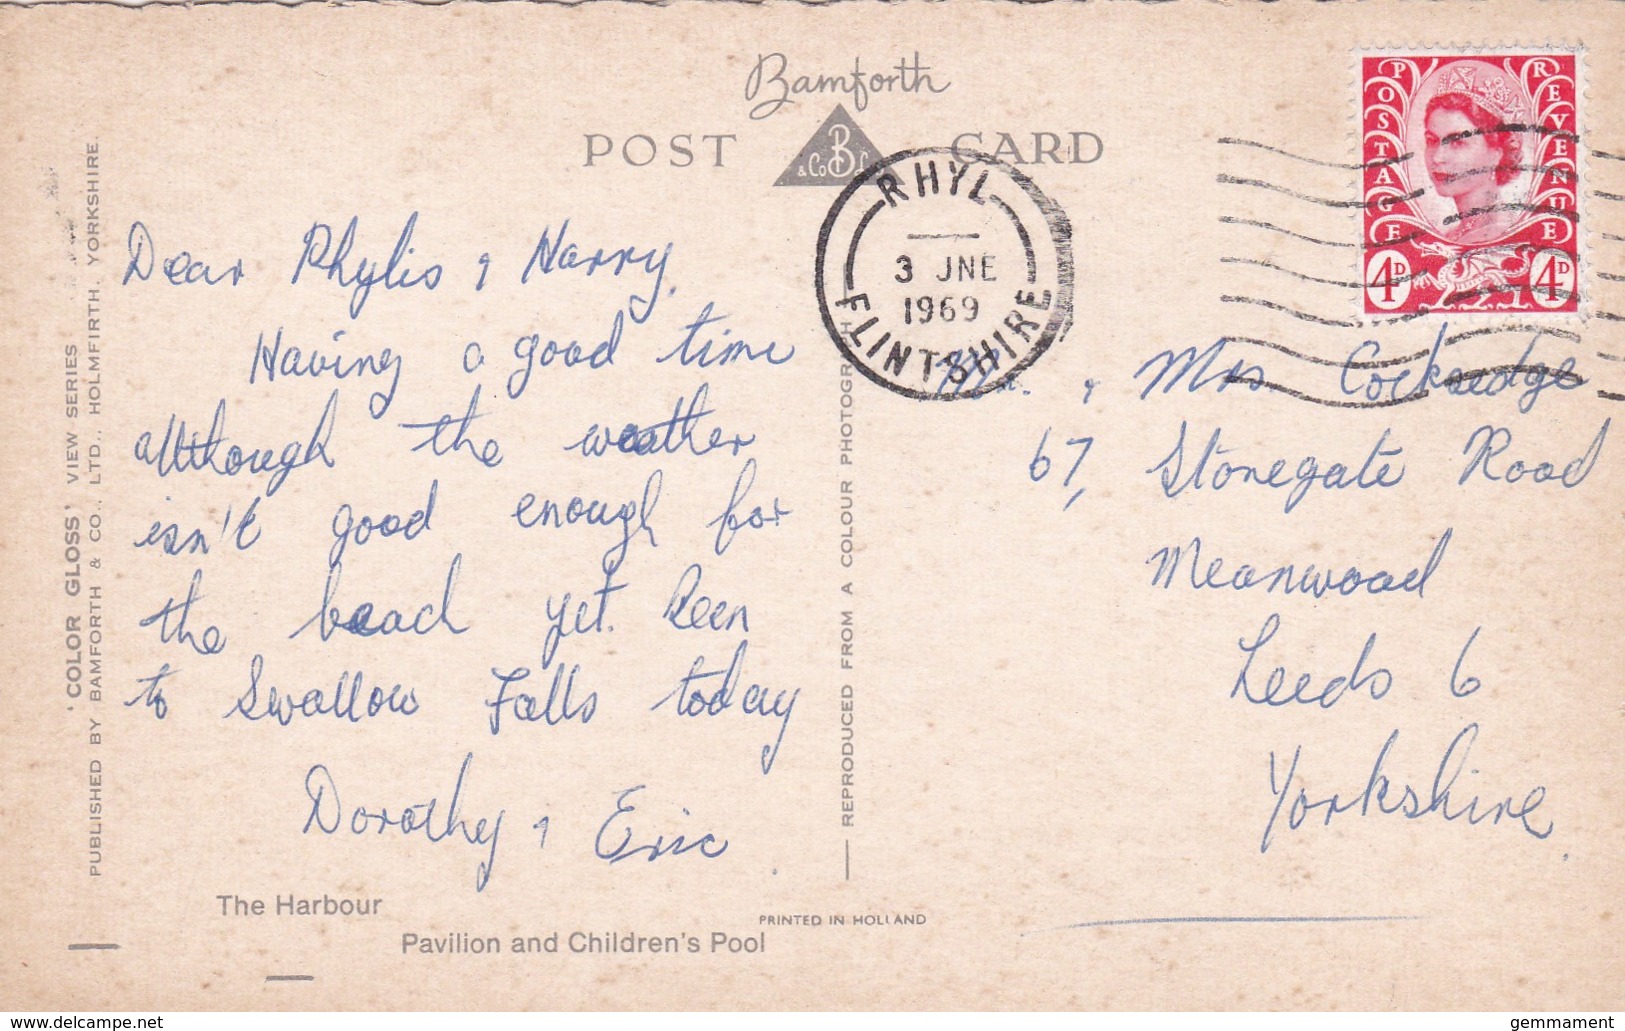 Bamforth
POST CARD
& Co B Ld
RHYL
3 JNE
1969
FLINTSHIRE
POSTAGE REVENUE
4D 4D
Dear Phylis & Harry,
Having a good time
although the weather
isn't good enough for
the beach yet. Been
to Swallow Falls today
Dorothy & Eric.
Mr. & Mrs Cocksedge
67, Stonegate Road
Meanwood
Leeds 6
Yorkshire.
'COLOR GLOSS' VIEW SERIES
PUBLISHED BY BAMFORTH & CO., LTD., HOLMFIRTH, YORKSHIRE.
REPRODUCED FROM A COLOUR PHOTOGRAPH
The Harbour
Pavilion and Children's Pool
PRINTED IN HOLLAND
www.delcampe.net
gemmament